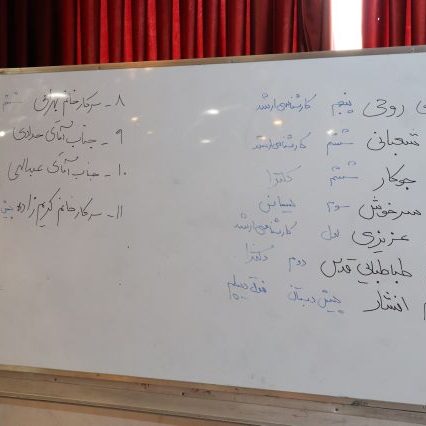 روحی پنجم کارشناسی ارشد
شعبانی ششم کارشناسی ارشد
جوکار ششم دکترا
سرخوش سوم لیسانس
عزیزی اول کارشناسی ارشد
طباطبایی قدس دوم دکترا
افشار پیش دبستان فوق دیپلم
۸ - سرکار خانم ششم
۹ - جناب آقای حدادی
۱۰ - جناب آقای عبدالهی
۱۱ - سرکار خانم کریم زاده پیش